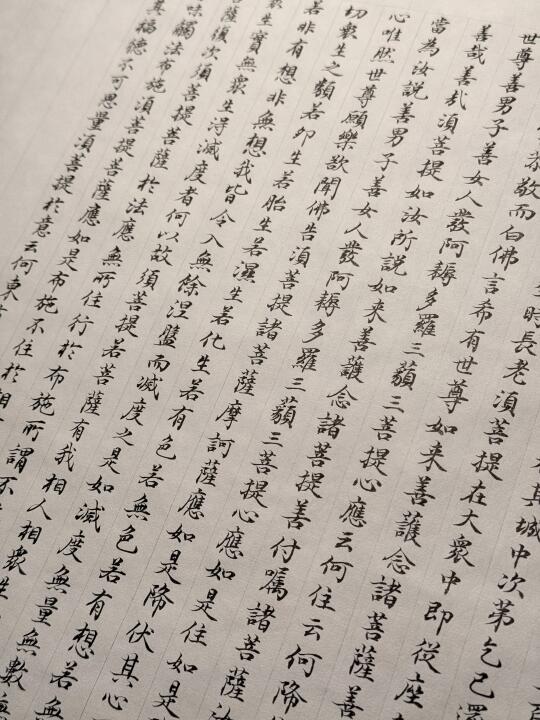 其城中次第乞已還
時長老須菩提在大衆中即從座
恭敬而白佛言希有世尊如来善護念諸菩薩善
世尊善男子善女人發阿耨多羅三藐三菩提心應云何住云何降
善哉善哉須菩提如汝所説如来善護念諸菩薩善付囑諸菩薩汝
當為汝説善男子善女人發阿耨多羅三藐三菩提心應如是住如是降
心唯然世尊願樂欲聞佛告須菩提諸菩薩摩訶薩應如是降伏其心
切衆生之類若卵生若胎生若濕生若化生若有色若無色若有想若無
若非有想非無想我皆令入無餘涅盤而滅度之是如滅度無量無數無
衆生實無衆生得滅度者何以故須菩提若菩薩有我相人相衆生
菩薩復次須菩提菩薩於法應無所住行於布施所謂不
味觸法布施須菩提菩薩應如是布施不住於相
其福德不可思量須菩提於意云何東